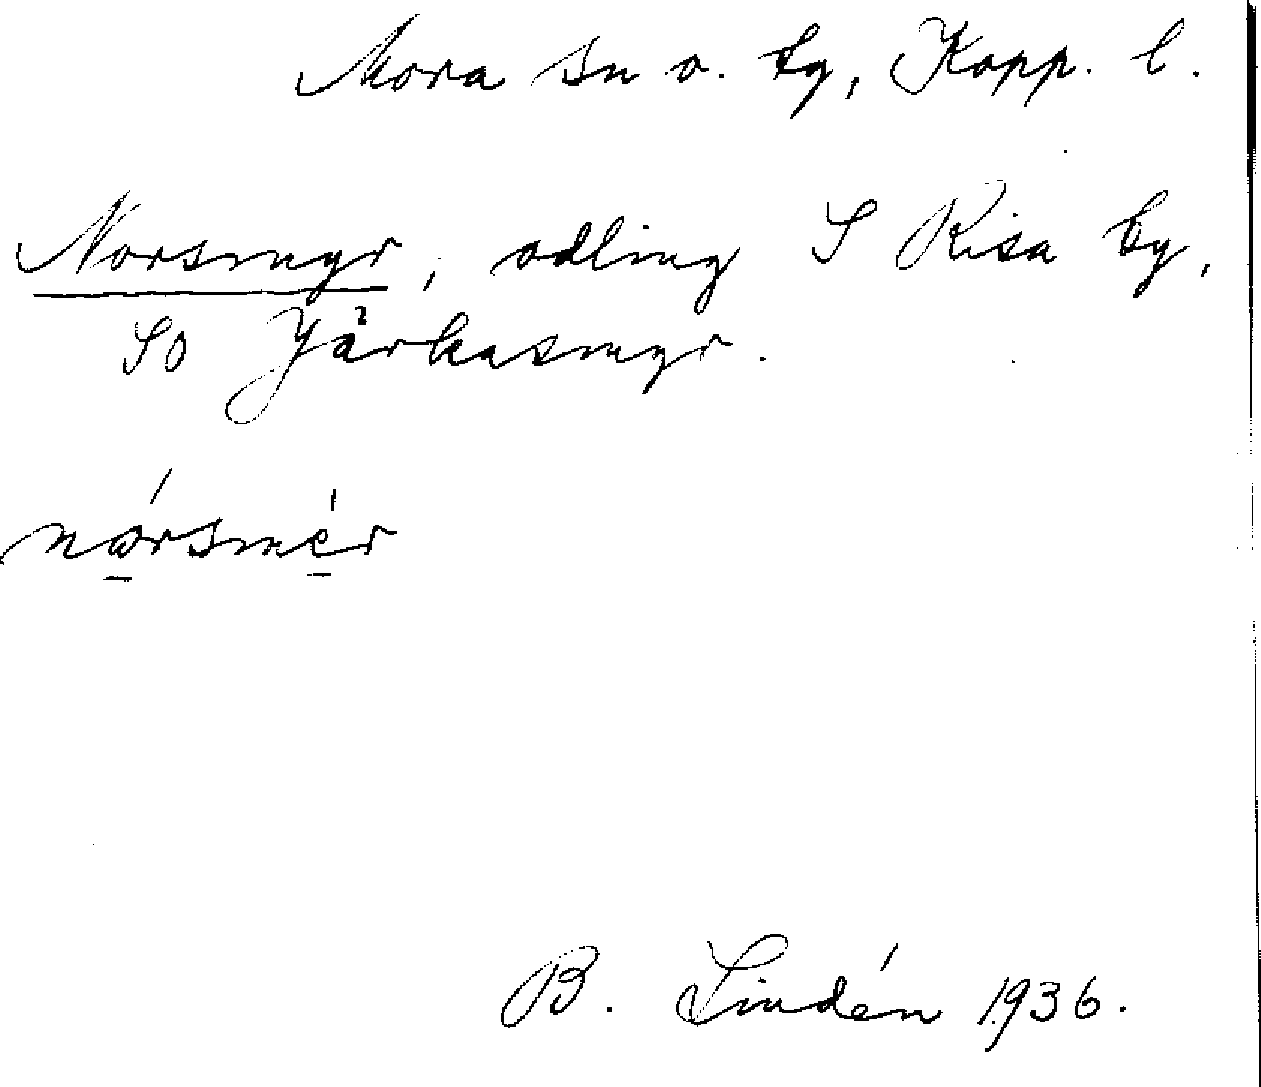 Mora sn o. tg, Kopp. l.
Norsmyr, odling S Risa by,
SO Jårkasmyr.
nǫ́rsmę́r
B. Lindén 1936.